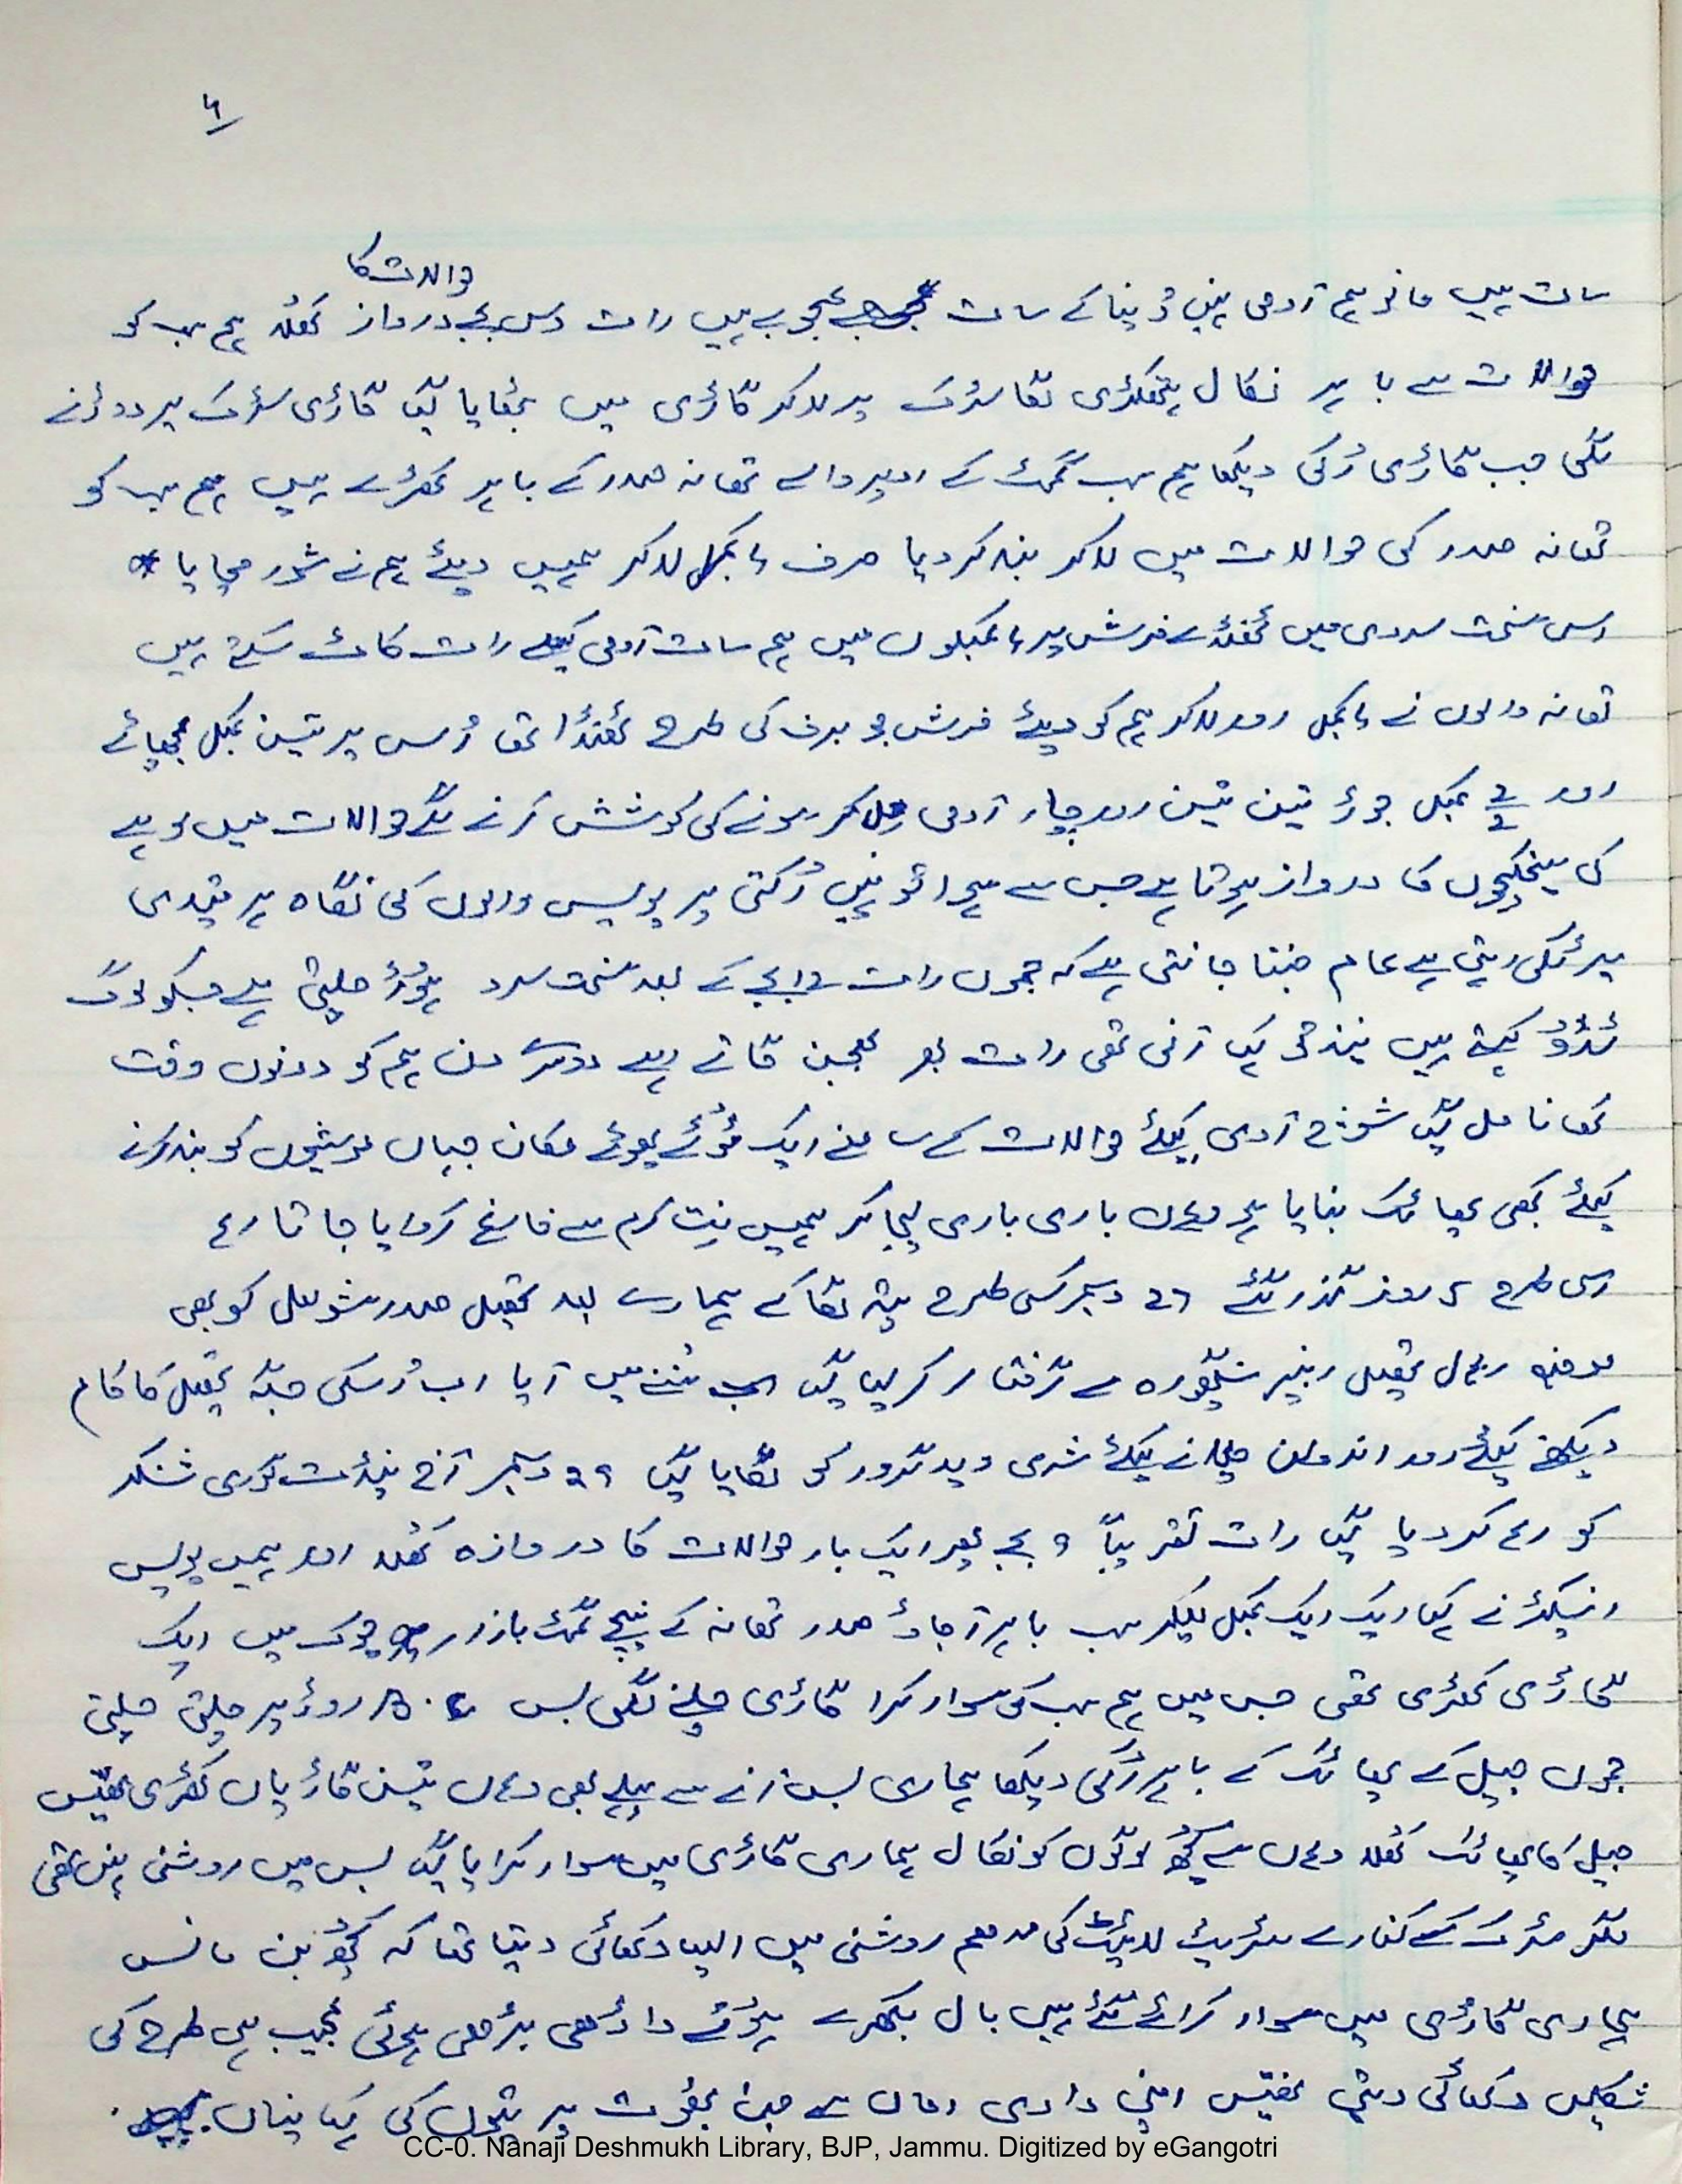 ۶
حوالات کا
سات ہیں مانو ہم آدمی نہیں دنیا کے سات عجوبے ہیں رات دس بجے دروازہ کھلا ہم سب کو
حوالات سے باہر نکال ہتھکڑی لگا سڑک پر لاکر گاڑی میں بٹھایا گیا گاڑی سڑک پر دوڑنے
لگی جب گاڑی رُکی دیکھا ہم سب گمٹ کے اوپر والے تھانہ صدر کے باہر کھڑے ہیں ہم سب کو
تھانہ صدر کی حوالات میں لاکر بند کردیا صرف کمبل لاکر ہمیں دیئے ہم نے شور مچایا
اس سخت سردی میں ٹھنڈے فرش پر کمبلوں میں ہم سات آدمی کیسے رات کاٹ سکتے ہیں
تھانہ والوں نے کمبل اور لاکر ہم کو دیئے فرش جو برف کی طرح ٹھنڈا تھا اُس پر تین کمبل بچھائے
اور کمبل جوڑ تین تین اور چار آدمی مل کر سونے کی کوشش کرنے لگے حوالات میں لوہے
کی سیخچوں کا دروازہ ہوتا ہے جس سے ہوا تو نہیں رُکتی پر پولیس والوں کی نگاہ ہر قیدی
پر ٹکی رہتی ہے عام جنتا جانتی ہے کہ جموں رات بجے کے بعد سخت سرد ہوا چلتی ہے جسکو لوگ
کہتے ہیں نیند تو کیا آنی تھی رات بھر بھجن گاتے رہے دوسرے دن ہم کو دونوں وقت
کھانا مل گیا شوچ آدی کیلئے حوالات کے سامنے ایک ٹوٹے ہوئے مکان جہاں مویشیوں کو بند کرنے
کیلئے کبھی پھاٹک بنایا ہو وہاں باری باری لیجا کر ہمیں نِت کرم سے فارغ کروایا جاتا رہا
اسی طرح ۵ روز گذر گئے ۲۶ دسمبر کسی طرح پتہ لگا کے ہمارے بعد تحصیل صدر شو لعل کو بھی
موضع تحصیل رنبیر سنگھپورہ سے گرفتار کر لیا گیا سُننے میں آیا اب اُسکی جگہ تحصیل کا کام
دیکھنے کیلئے اور اندولن چلانے کیلئے شری وید گرور کو لگایا گیا ۲۹ دسمبر آج پنڈت گوری شنکر
کو رہا کردیا گیا رات تقریباً ۹ بجے پھر ایک بار حوالات کا دروازہ کھلا اور ہمیں پولیس
انسپکٹر نے کہا ایک ایک کمبل لیکر سب باہر آجاؤ صدر تھانہ کے نیچے گمٹ بازار چوک میں ایک
گاڑی کھڑی تھی جس میں ہم سب کو سوار کرا گاڑی چلنے لگی بس B.C روڑ پر چلتی چلتی
جموں جیل کے پھاٹک کے باہر رُکی دیکھا ہماری بس آنے سے پہلے بھی وہاں تین گاڑیاں کھڑی تھیں
جیل کا پھاٹک کھلا وہاں سے کچھ لوگوں کو نکال ہماری گاڑی میں سوار کرایا گیا بس میں روشنی نہیں تھی
مگر سڑک کے کنارے سٹریٹ لائیٹ کی مدھم روشنی میں ایسا دکھائی دیتا تھا کہ کچھ بن مانس
ہماری گاڑی میں سوار کرائے گئے ہیں بال بکھرے ہوئے داڑھی بڑھی ہوئی عجیب ہی طرح کی
شکلیں دکھائی دیتی تھیں اپنی دادی اماں سے جن بھوت پریتوں کی کہانیاں
CC-0. Nanaji Deshmukh Library, BJP, Jammu. Digitized by eGangotri